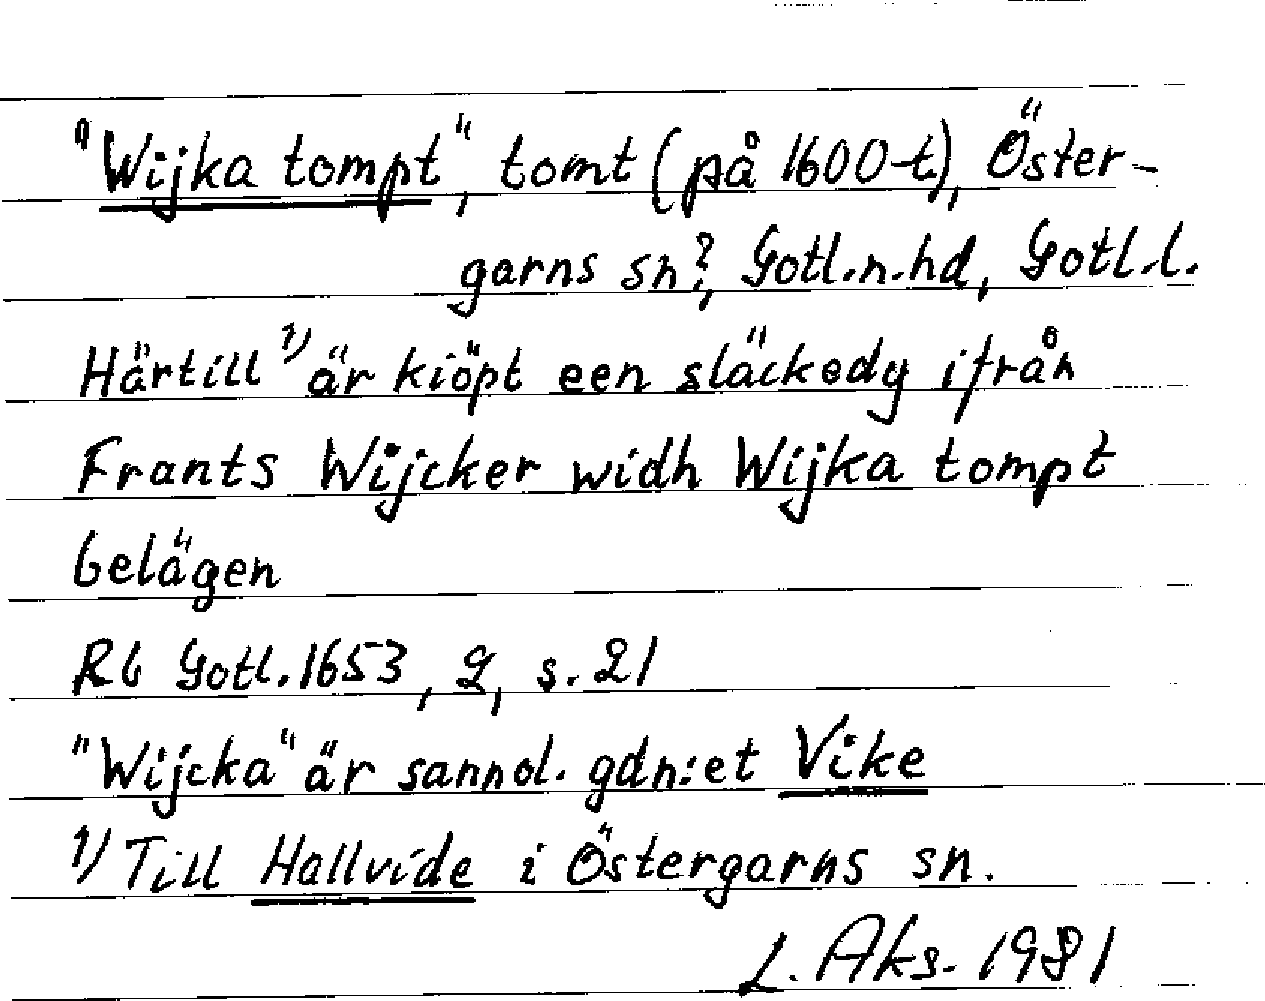 "Wijka tompt", tomt (på 1600-t), Öster-
garns sn?, Gotl.n.hd, Gotl.l.
Härtill 1) är kiöpt een släckedy ifrån
Frants Wijcker widh Wijka tompt
belägen
Rb Gotl. 1653, 2, s. 21
"Wijcka" är sannol. gdn:et Vike
1) Till Hallvide i Östergarns sn.
L. Aks. 1981